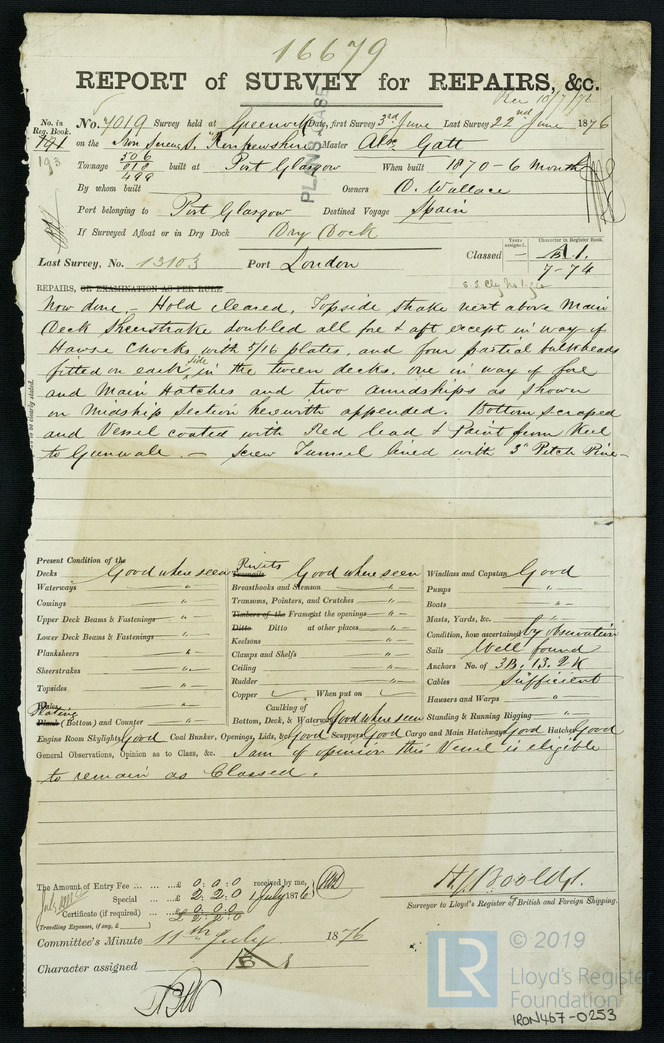 16679
REPORT of SURVEY for REPAIRS, &c.
Rec 10/7/76
PLANS CASE
No. in Reg. Book.
No. 7019 Survey held at Greenwich Date, first Survey 3rd June Last Survey 22nd June 1876
191 on the Iron Screw S. "Renfrewshire" Master Alexr. Gatt
193
506
Tonnage 818 built at Port Glasgow When built 1870-6 Month
499
By whom built Owners O. Wallace
Port belonging to Port Glasgow Destined Voyage Spain
If Surveyed Afloat or in Dry Dock Dry Dock
Years assigned. Character in Register Book.
Last Survey, No. 13103 Port London Classed - A 1.
7-74
REPAIRS, OR EXAMINATION AS PER RULE
Now done. Hold cleared, Topside strake next above Main
Deck Sheerstrake doubled all fore & aft except in way of
Hawse Chocks with 5/16 plates, and four partial bulkheads
fitted on each side in the tween decks, one in way of fore
and Main Hatches and two amidships as shown
on Midship Section herewith appended. Bottom scraped
and Vessel coated with Red lead & Paint from Keel
to Gunwale. — Screw Tunnel lined with 3" Pitch Pine —
to be clearly stated.
Present Condition of the
Decks Good where seen
Waterways "
Comings "
Upper Deck Beams & Fastenings "
Lower Deck Beams & Fastenings "
Planksheers "
Sheerstrakes "
Topsides "
Wales "
Plating
Plank (Bottom) and Counter "
Rivets
Treenails Good where seen
Breasthooks and Stemson "
Transoms, Pointers, and Crutches "
Timbers of the Frame at the openings "
Ditto Ditto at other places "
Keelsons "
Clamps and Shelfs "
Ceiling "
Rudder "
Copper When put on
Caulking of
Bottom, Deck, & Waterways Good where seen
Windlass and Capstan Good
Pumps "
Boats "
Masts, Yards, &c. "
Condition, how ascertained by observation
Sails Well found
Anchors No. of 3B. 1S. 2K
Cables Sufficient
Hawsers and Warps "
Standing & Running Rigging "
Engine Room Skylights Good Coal Bunker, Openings, Lids, &c. Good Scuppers Good Cargo and Main Hatchways Good Hatches Good
General Observations, Opinion as to Class, &c. I am of opinion this Vessel is eligible
to remain as Classed.
The Amount of Entry Fee ... £ 0: 0: 0 received by me,
Special ... £ 2: 2: 0 1 July 1876
Certificate (if required) .. £ 0: 0: 0
£ 2: 2: 0
(Travelling Expenses, if any, £ )
Surveyor to Lloyd's Register of British and Foreign Shipping.
Committee's Minute 11th July 1876
Character assigned A 1
LR
© 2019
Lloyd's Register
Foundation
IRON467-0253